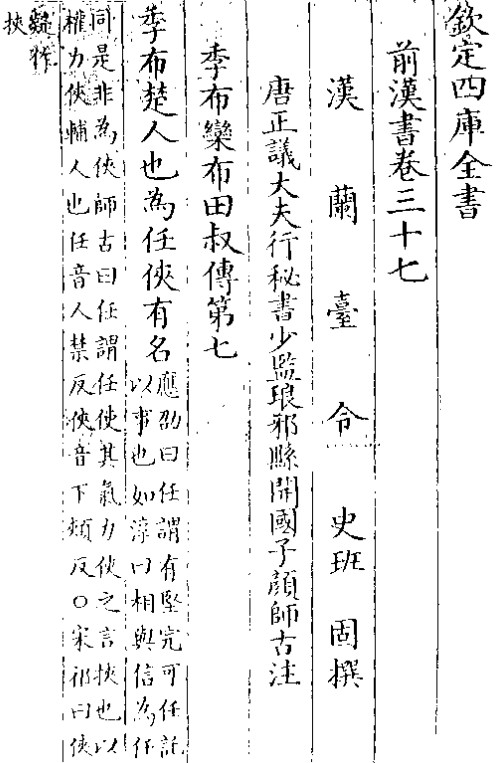 欽定四庫全書
前漢書卷三十七
漢蘭臺令史班固撰
唐正議大夫行秘書少監琅邪縣開國子顔師古注
季布欒布田叔傳第七
季布楚人也為任俠有名應劭曰任謂有堅完可任託
以事也如淳曰相與信為任
同是非為俠師古曰任謂任使其氣力俠之言挾也以
權力俠輔人也任音人禁反俠音下頰反○宋祁曰俠
疑作
挾